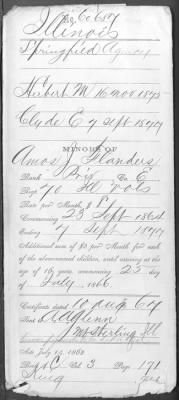 No 60687
Illinois
Springfield Agency
Hubert M 16 nov 1875
Clyde E 7 Sept 1877
MINORS OF
Amos J Flanders
Rank Priv Co. E
Regt. 70 Ill Vols
Rate per Month, $ 8
Commencing 23 Sept 1864
Ending 7 Sept 1877
Additional sum of $2 per Month for each
of the abovenamed children, until arriving at the
age of 16 years, commencing 25 day
of July, 1866.
Certificate dated 10 aug 67
Sent
Mt Sterling Ill
Act July 14, 1862.
Book C Vol. 3 Page 171